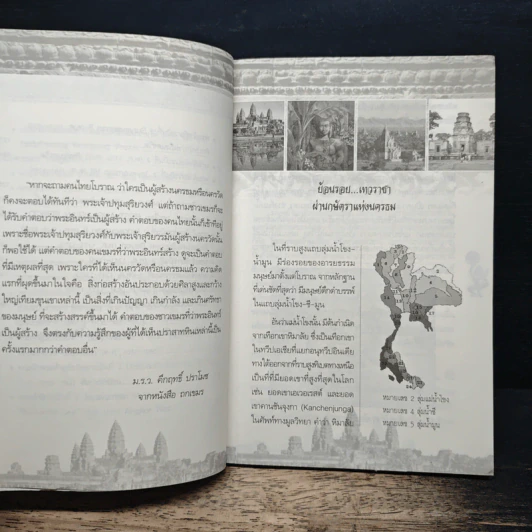 "หากจะถามคนไทยโบราณ ว่าใครเป็นผู้สร้างนครธมหรือนครวัด
ก็คงจะตอบได้ทันทีว่า พระเจ้าปทุมสุริยวงศ์ แต่ถ้าถามชาวเขมรก็จะ
ได้รับคำตอบว่าพระอินทร์เป็นผู้สร้าง คำตอบของคนไทยนั้นก็เข้าทีอยู่
เพราะชื่อพระเจ้าปทุมสุริยวงศ์กับพระเจ้าสุริยวรมันผู้สร้างนครวัดนั้น
ก็พอใช้ได้ แต่คำตอบของคนเขมรที่ว่าพระอินทร์สร้าง ดูจะเป็นคำตอบ
ที่มีเหตุผลที่สุด เพราะใครที่ได้เห็นนครวัดหรือนครธมแล้ว ความคิด
แรกที่ผุดขึ้นมาในใจคือ สิ่งก่อสร้างอันประกอบด้วยศิลาสูงและกว้าง
ใหญ่เทียมขุนเขาเหล่านี้ เป็นสิ่งที่เกินปัญญา เกินกำลัง และเกินคริดา
ของมนุษย์ ที่จะสร้างสรรค์ขึ้นมาได้ คำตอบของชาวเขมรที่ว่าพระอินทร์
เป็นผู้สร้าง จึงตรงกับความรู้สึกของผู้ที่ได้เห็นปราสาทหินเหล่านี้เป็น
ครั้งแรกมากกว่าคำตอบอื่น"
ม.ร.ว. คึกฤทธิ์ ปราโมช
จากหนังสือ ถกเขมร
ย้อนรอย...เทวราชา
ผ่านกษัตราแห่งนครธม
ในที่ราบสูงแถบลุ่มน้ำโขง-
น้ำมูน มีร่องรอยของอารยธรรม
มนุษย์มาตั้งแต่โบราณ จากหลักฐาน
ที่เด่นชัดที่สุดว่า มีมนุษย์ดึกดำบรรพ์
ในแถบลุ่มน้ำโขง-ชี-มูน
อันว่าแม่น้ำโขงนั้น มีต้นกำเนิด
จากเทือกเขาหิมาลัย ซึ่งเป็นเทือกเขา
ในทวีปเอเชียที่แยกอนุทวีปอินเดีย
ทางใต้ออกจากที่ราบสูงทิเบตทางเหนือ
เป็นที่ที่มียอดเขาที่สูงที่สุดในโลก
เช่น ยอดเขาเอเวอเรสต์ และยอด
เขาคานชันจุงกา (Kanchenjunga)
ในศัพท์ทางภูมิวิทยา คำว่า หิมาลัย
หมายเลข 2 ลุ่มแม่น้ำโขง
หมายเลข 4 ลุ่มน้ำชี
หมายเลข 5 ลุ่มน้ำมูน